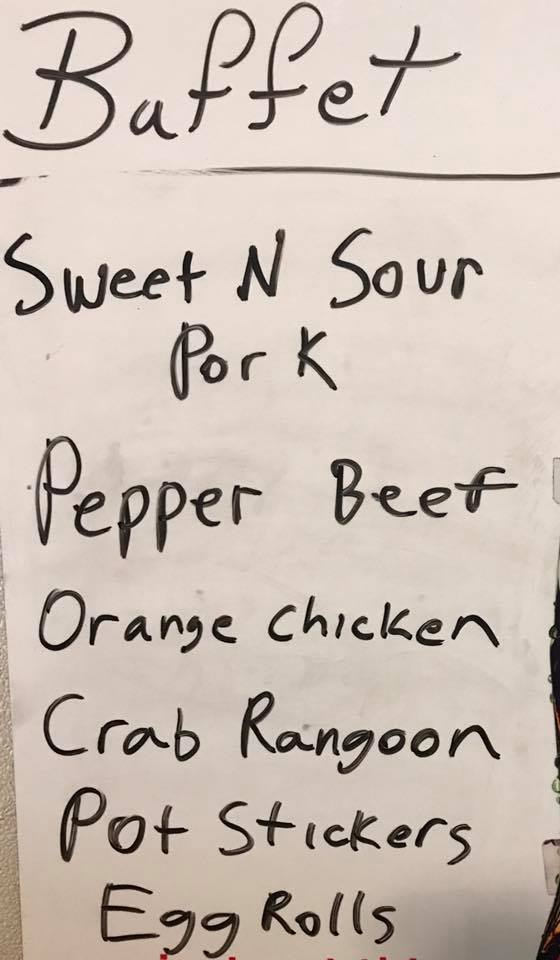 Buffet
Sweet N Sour
Pork
Pepper Beef
Orange chicken
Crab Rangoon
Pot Stickers
Egg Rolls